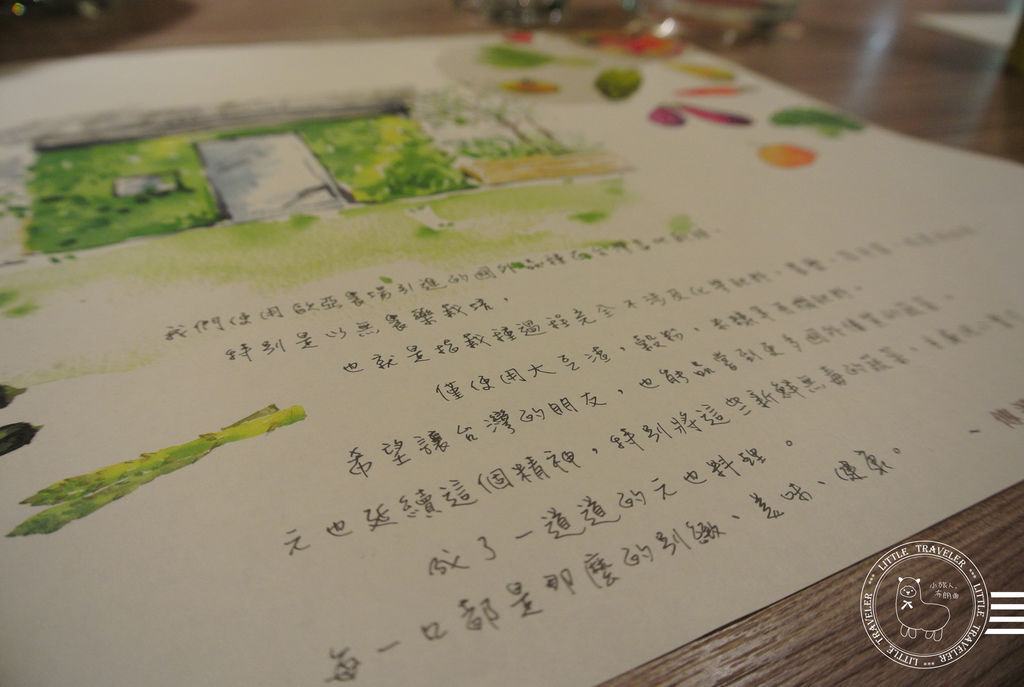 我們使用歐亞農場引進的國外品種
特別是以無農藥栽培，
也就是指栽種過程完全不涉及化學肥料、
僅使用大豆渣，穀粉，
希望讓台灣的朋友，也能品嘗到更多國外優質的蔬菜。
元也延續這個精神，特別將這些新鮮無毒的蔬菜，
成了一道道的元也料理。
每一口都是那麼的別緻、美味、健康。
LITTLE TRAVELER *** LITTLE TRAVELER *** LITTLE TRAVELER *** LITTLE TRAVELER ***
小旅人